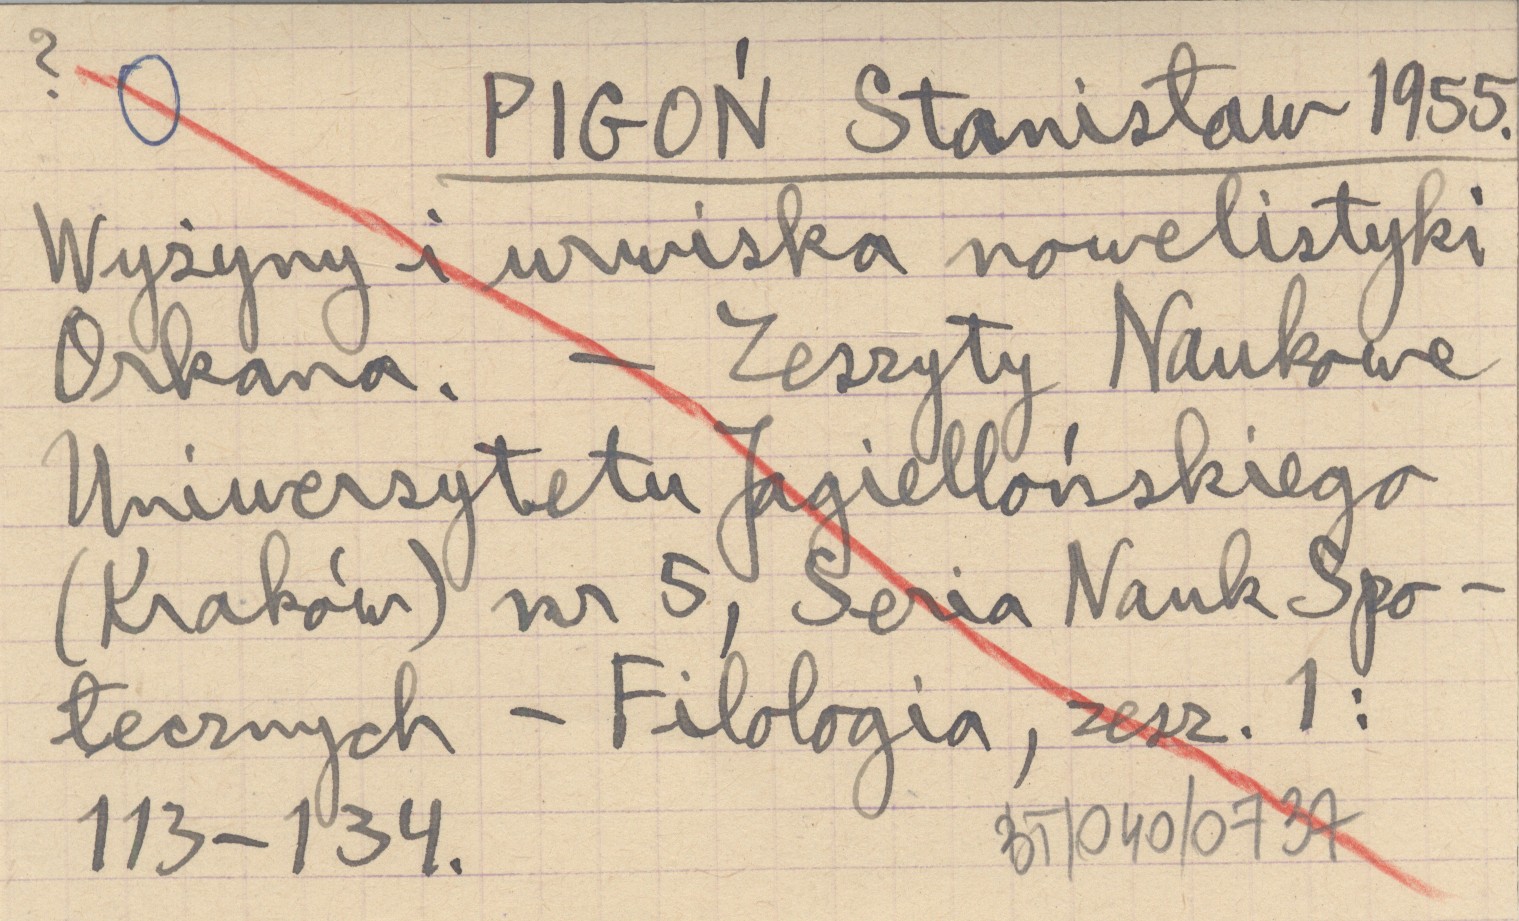 ?
PIGOŃ Stanisław 1955.
Wyżyny i urwiska nowelistyki
Orkana. – Zeszyty Naukowe
Uniwersytetu Jagiellońskiego
(Kraków) nr 5, Seria Nauk Spo-
łecznych – Filologia, zesz. 1:
113–134.
BT/040/0737